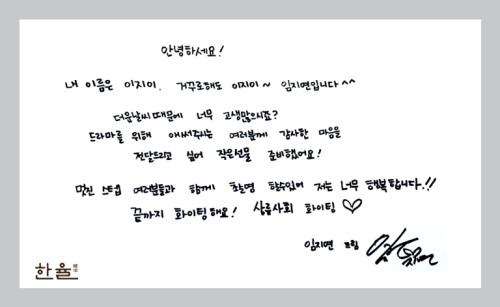 안녕하세요!
내 이름은 이지이. 거꾸로해도 이지이~ 임지연입니다^^
더운날씨 때문에 너무 고생많으시죠?
드라마를 위해 애써주시는 여러분께 감사한 마음을
전달드리고 싶어 작은선물 준비했어요!
멋진 스텝 여러분들과 함께 촬영 할수있어 저는 너무 행복합니다.!!
끝까지 화이팅해요! 상류사회 화이팅♡
임지연 드림
한율